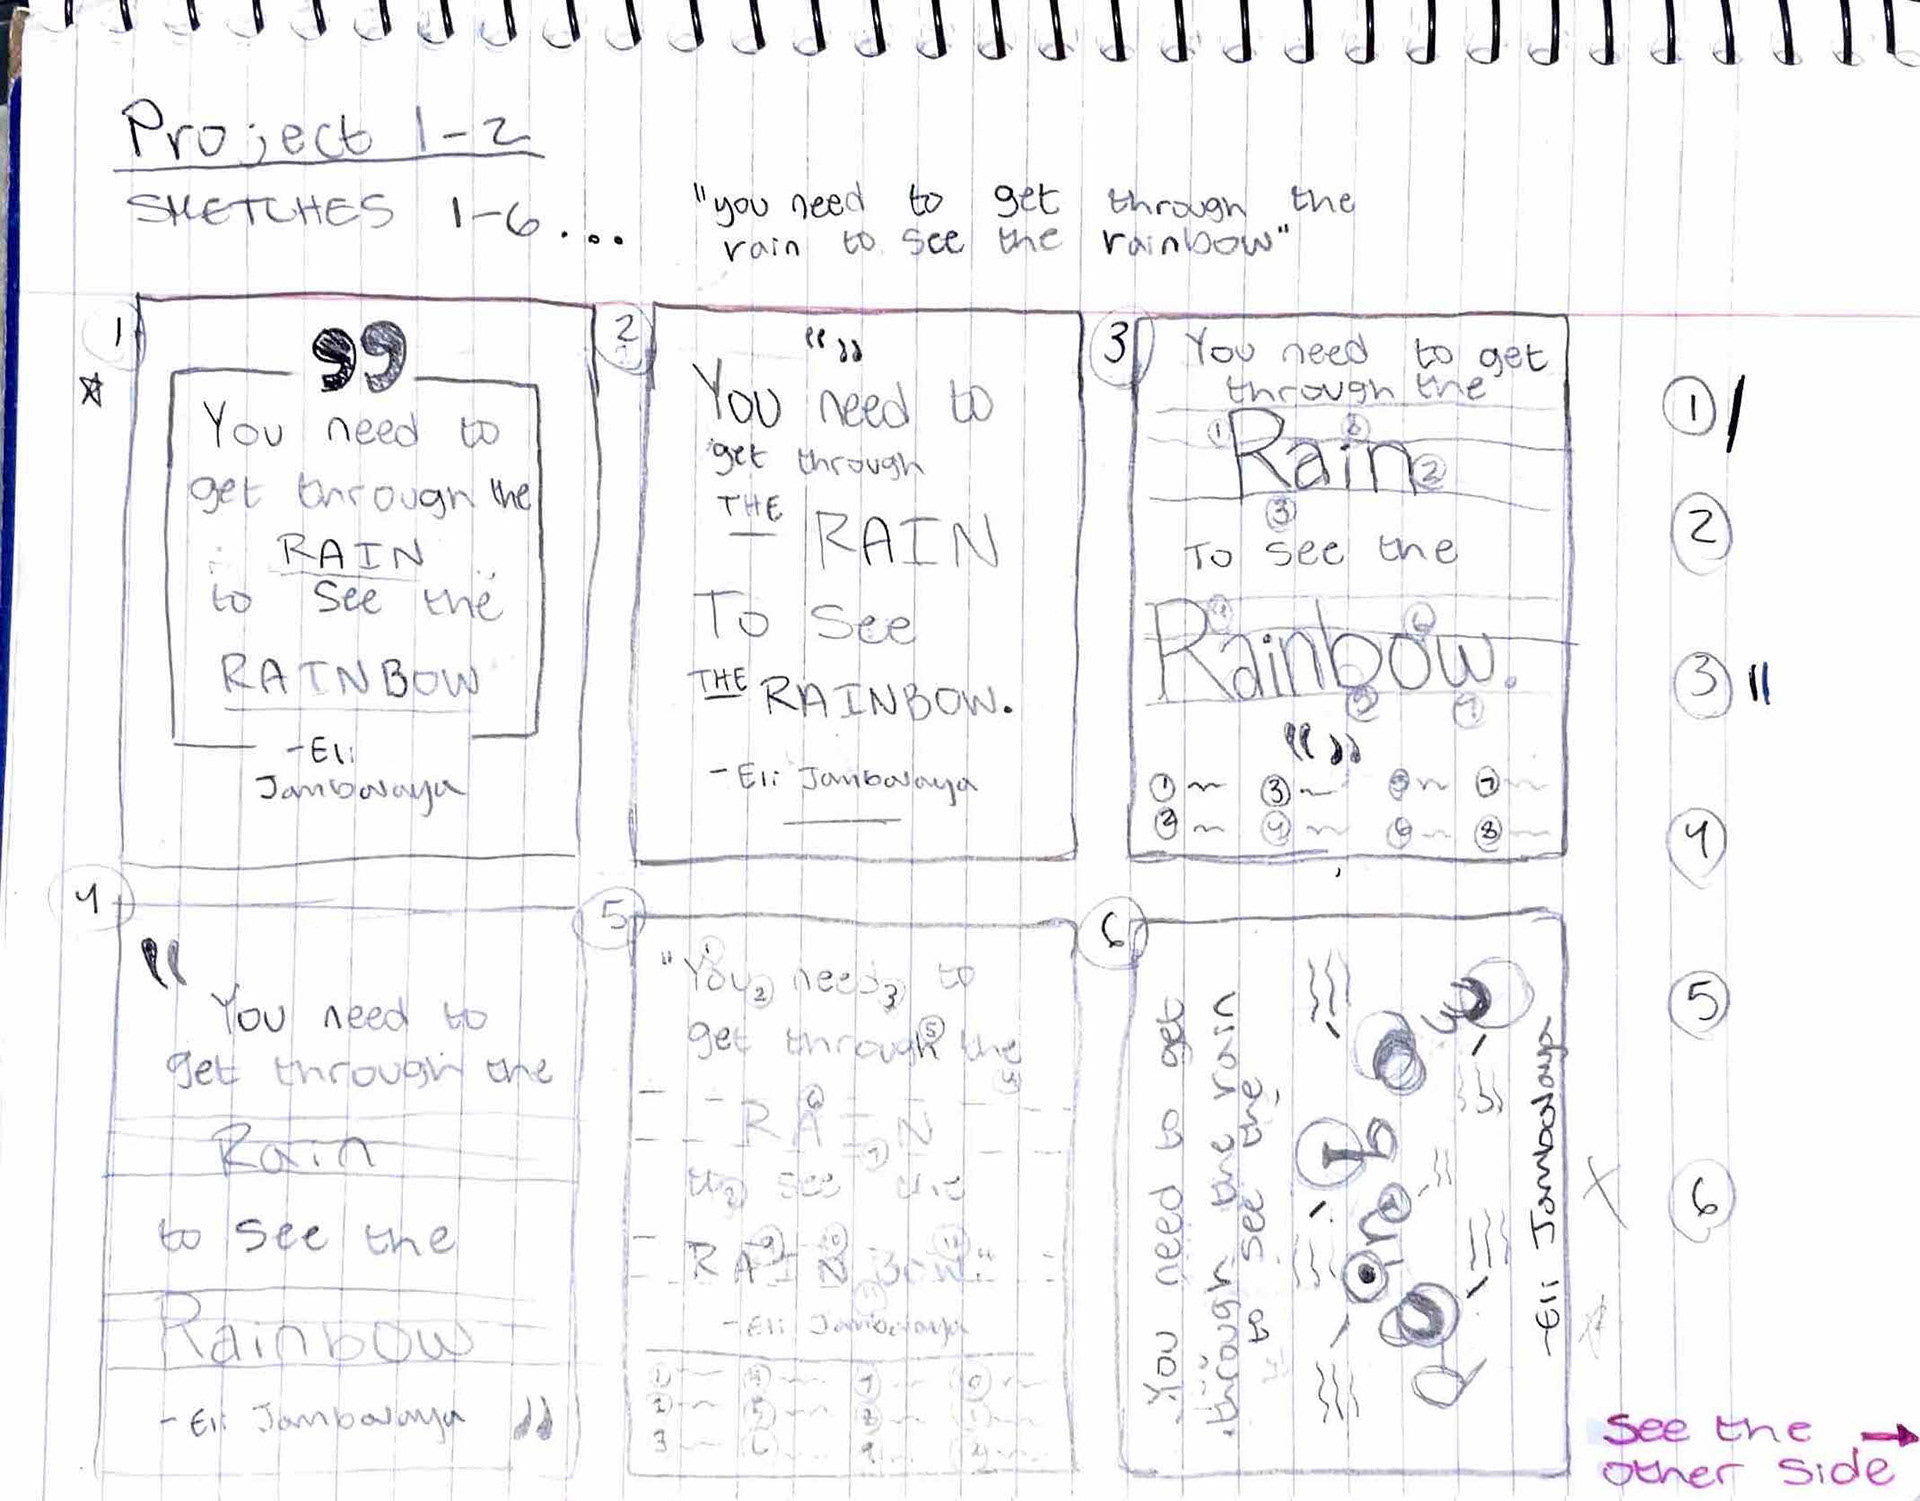 Project 1-2
SKETCHES 1-6....
"you need to get through the
rain to see the rainbow"
1
”
You need to
get through the
RAIN
to see the
RAINBOW
-Eli
Jambalaya
2
“”
You need to
get through
THE RAIN
To see
THE RAINBOW.
- Eli Jambalaya
3
You need to get
through the
Rain
1 2 3
To see the
Rainbow.
“”
1 3 5 7
2 4 6 8
4
“
You need to
get through the
Rain
to see the
Rainbow
- Eli Jambalaya ”
5
"You need to
get through the
RAIN
to see the
RAINBOW"
- Eli Jambalaya
1 4 7
2 5 8
3 6 9
6
You need to get
through the rain
to see the
Rainbow
-Eli Jambalaya
1
2
3
4
5
6
See the
other side